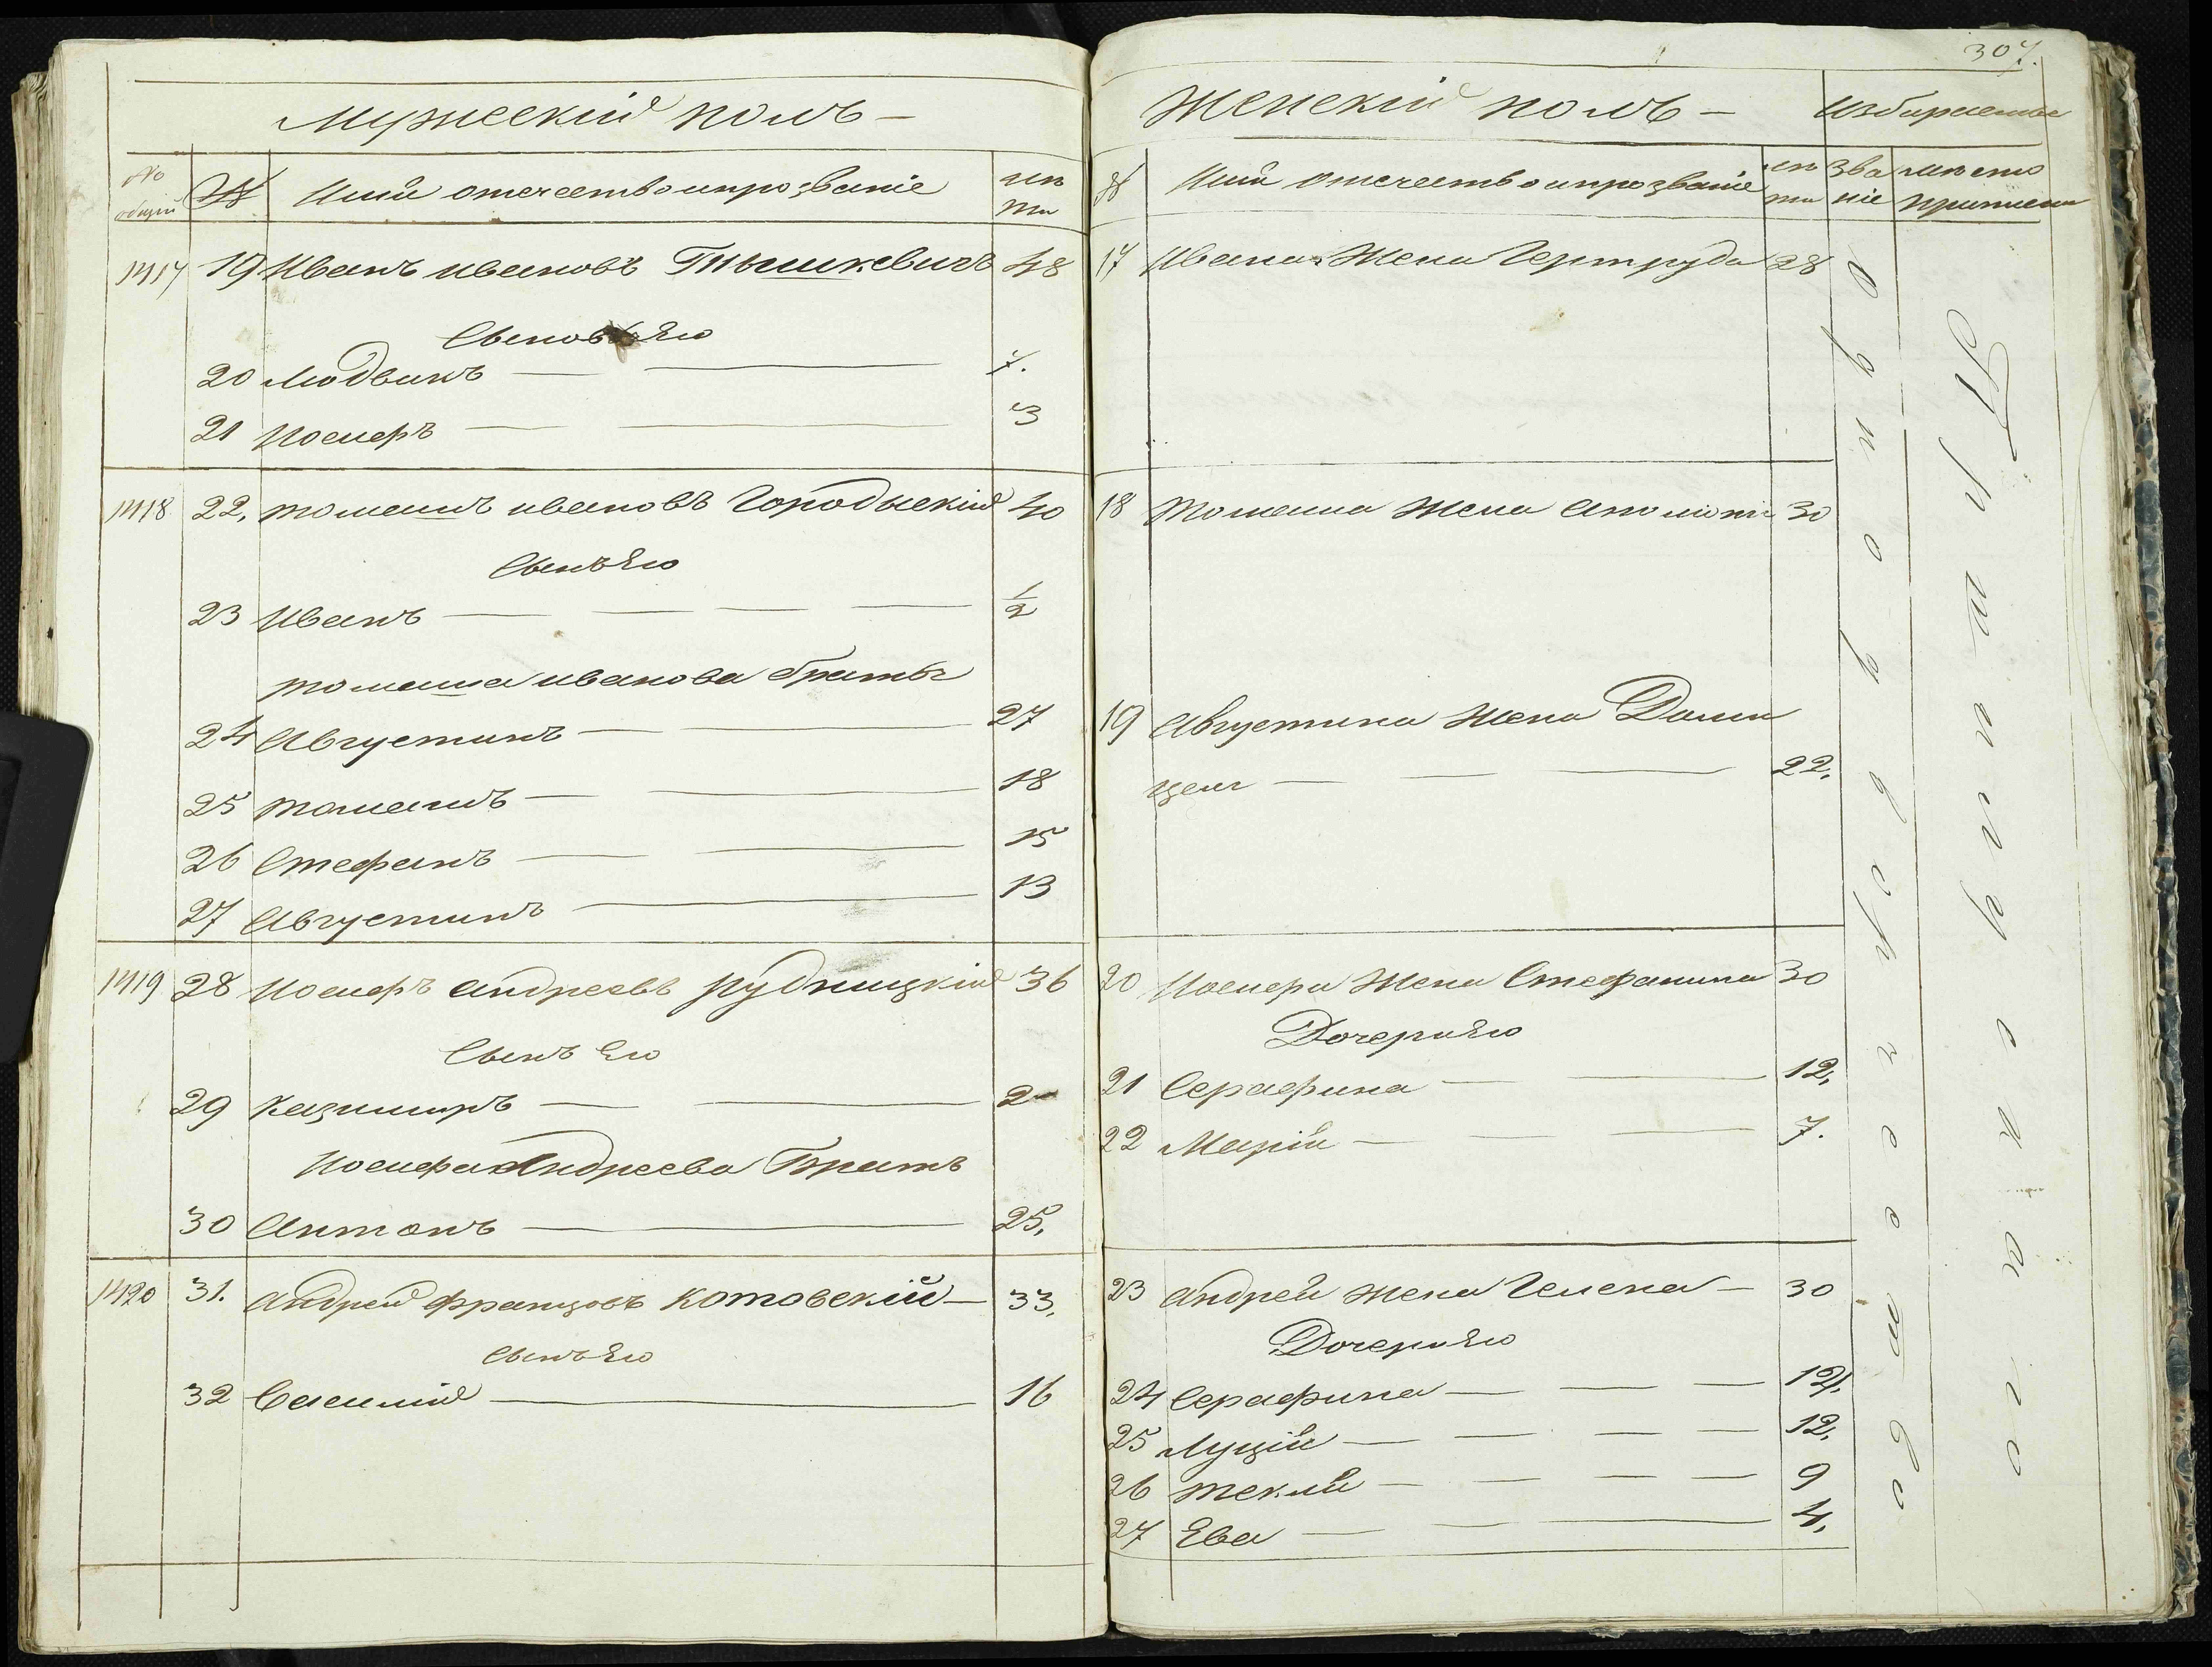 Мужескій полъ —
№ общій
№
Имя отечество и прозваніе
лѣта
1417 19 Иванъ Ивановъ Тышкевичъ 48
Сыновья Его
20 Людвикъ — — 7.
21 Іосифъ — — 3
1418 22. Томашъ Ивановъ Городыскій 40
Сынъ Его
23 Иванъ — — — — 1/2
Томаша Иванова братья
24 Августинъ — — 27
25 Томашъ — — 18
26 Стефанъ — — 15
27 Августинъ — 13
1419 28 Іосифъ Андреевъ Рудницкій 36
Сынъ Его
29 Казимиръ — — 2
Іосифа Андреева Братъ
30 Антонъ — — 25.
1420 31. Андрей Францовъ Котовскій — 33.
Сынъ Его
32 Василій — 16
307.
Женскій полъ —
Избираемые
№
Имя отечество и прозваніе
лѣта
званіе
мѣсто приписки
17 Ивана Жена Гертруда 28
18 Томаша Жена Аполонія 30
19 Августина Жена Доми
целя — — — 22.
20 Іосифа Жена Стефанина 30
Дочери Его
21 Серафина — — 12.
22 Марія — — — 7.
23 Андрея Жена Гелена — 30
Дочери Его
24 Серафина — — — 14.
25 Луція — — — — 12.
26 Текля — — — — 9
27 Ева — — — 4.
Однодворческое